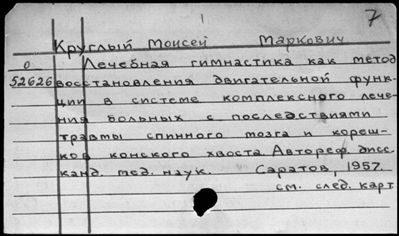 7
Круглый Моисей Маркович
О Лечебная гимнастика как метод
52626 восстановления двигательной функ-
ции в системе комплексного лече-
ния больных с последствиями
травмы спинного мозга и кореш-
ков конского хвоста. Автореф. дисс.
канд. мед. наук. Саратов, 1957.
см. след. карт